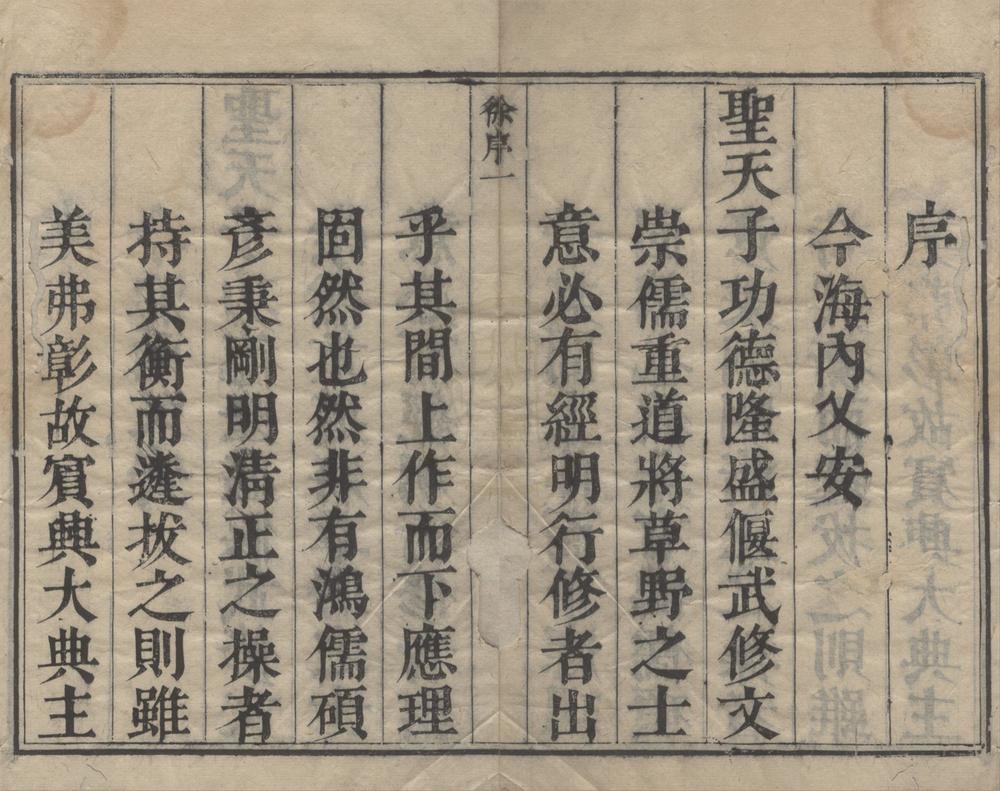 序
今海內乂安
聖天子功德隆盛偃武修文
崇儒重道將草野之士
意必有經明行修者出
徐序一
乎其間上作而下應理
固然也然非有鴻儒碩
彥秉剛明清正之操者
持其衡而遴拔之則雖
美弗彰故賓興大典主